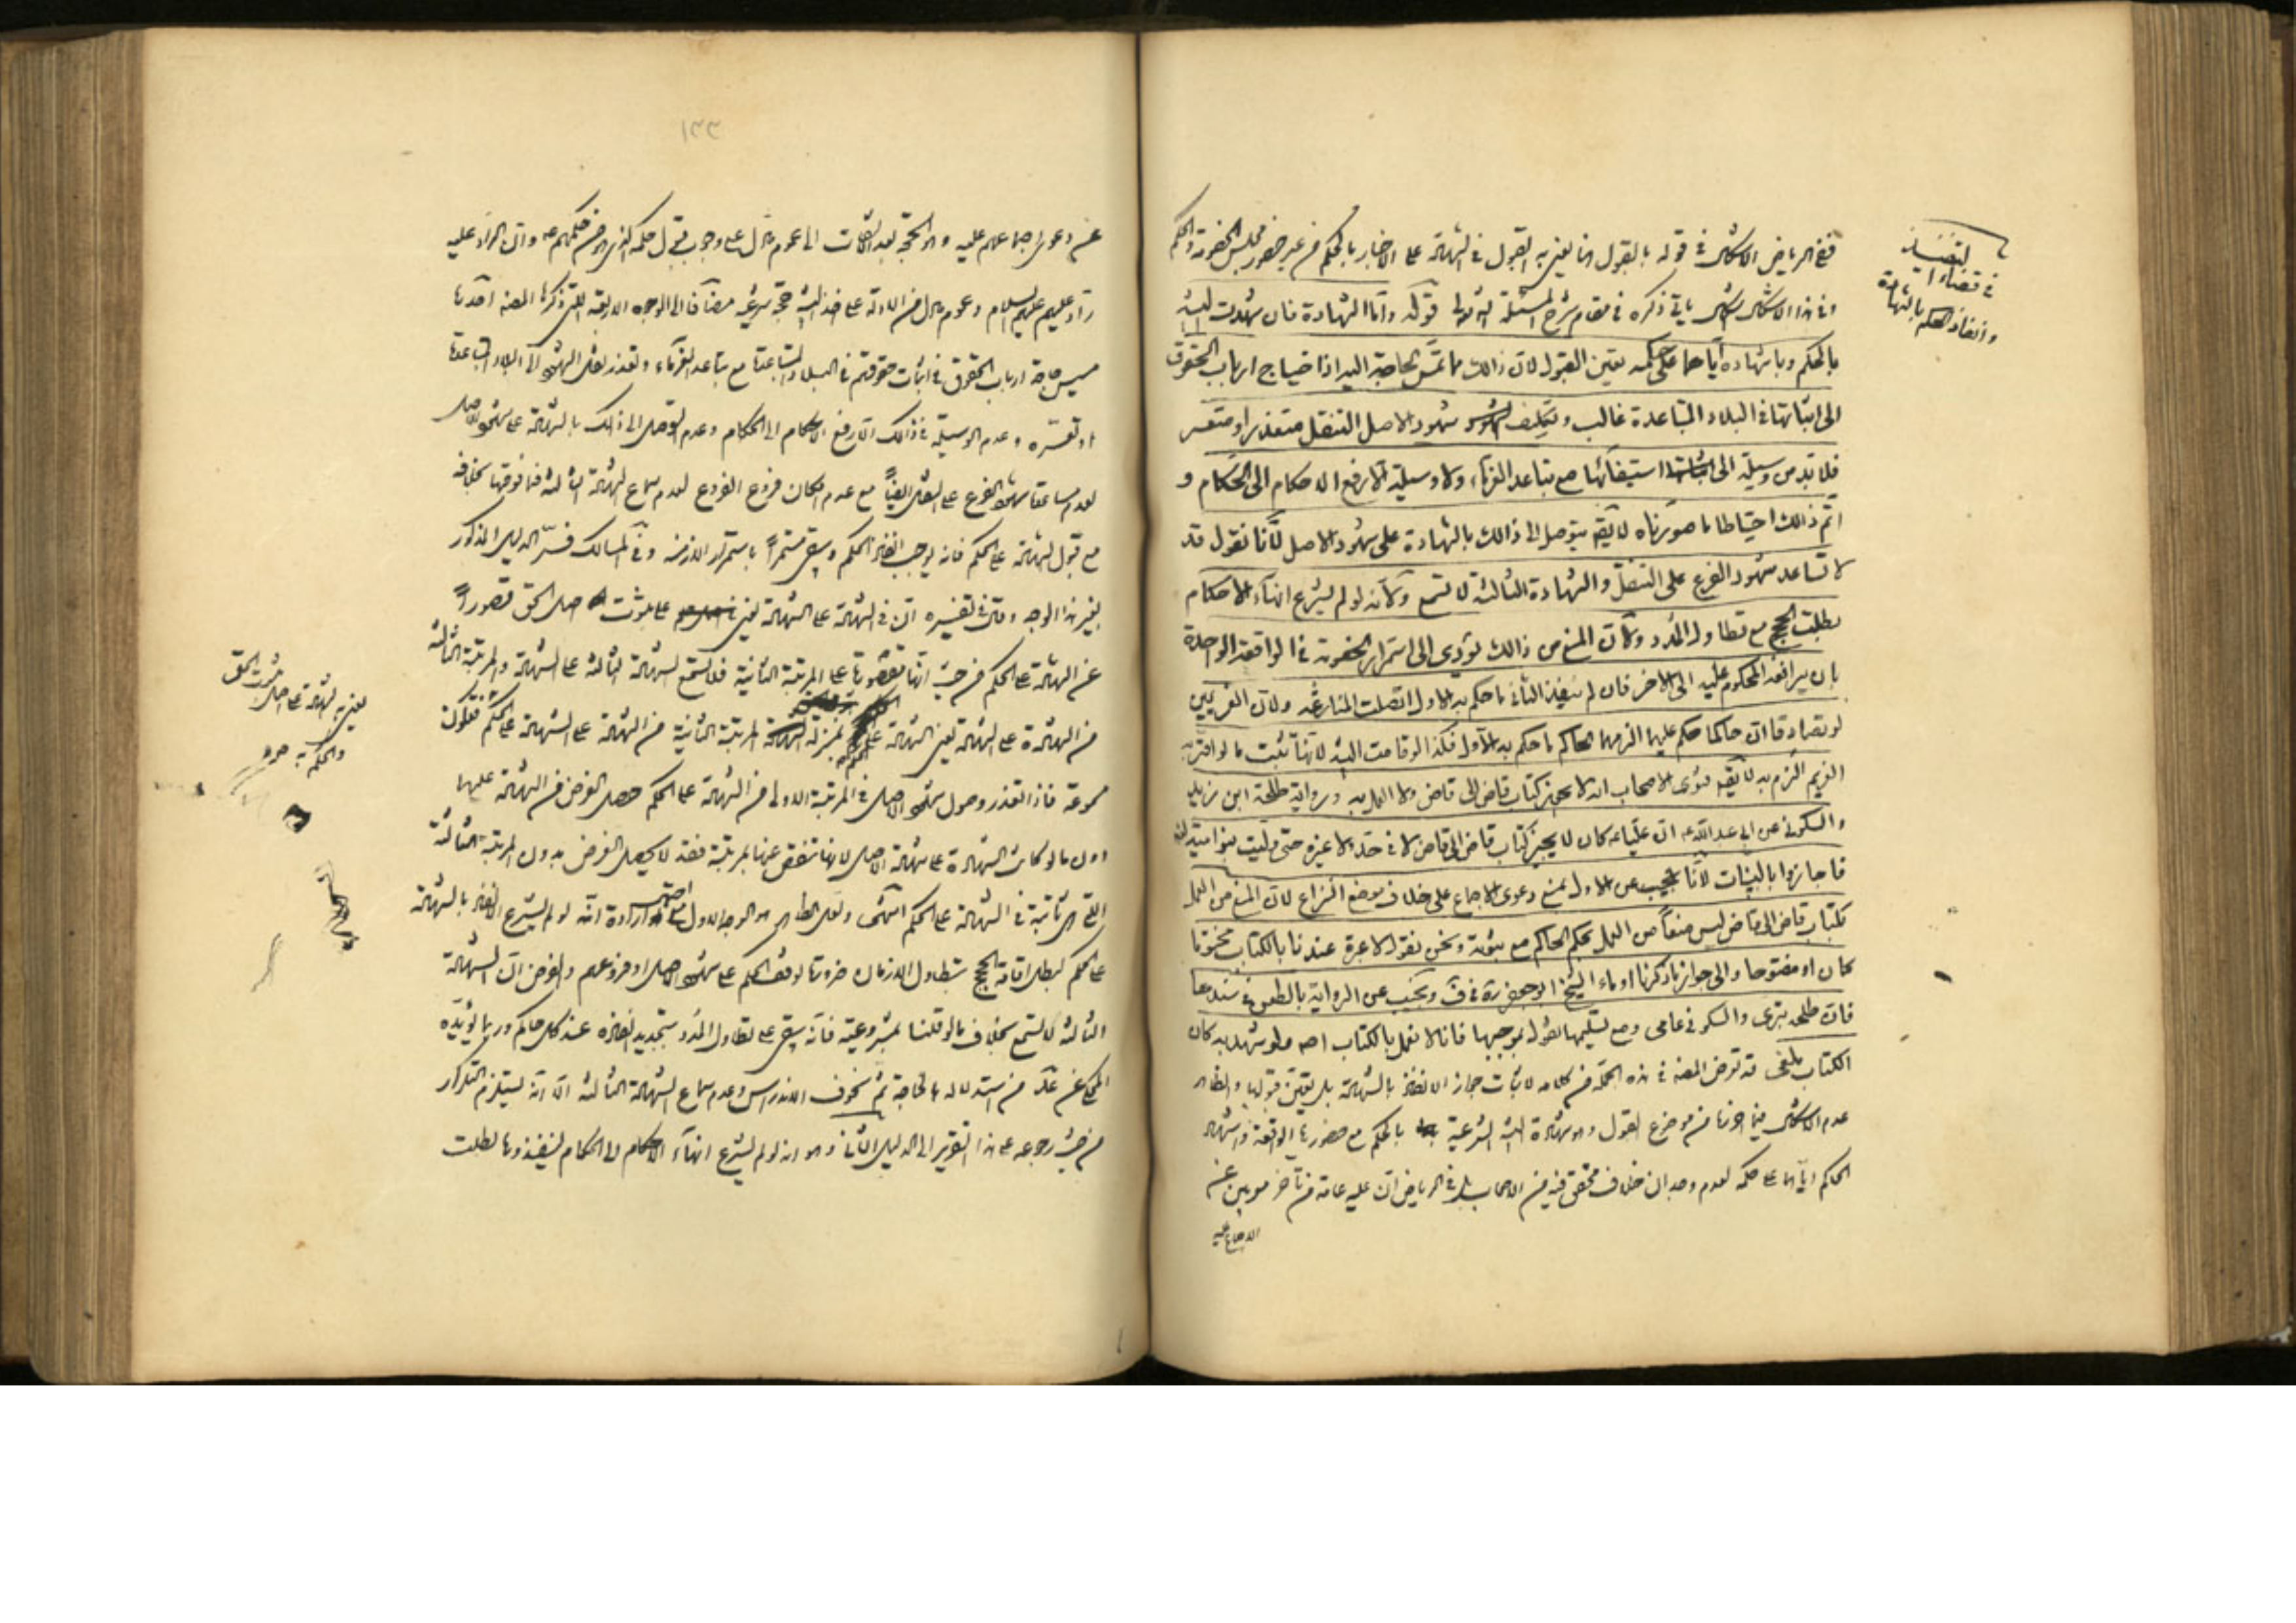 ففي الرياض الاشكال في قوله بالقبول انما يعني به القبول في الشهادة على الاخبار بالحكم من غير حضور مجلس الخصومة والحكم
وفي هذا الاشكال اشكال ياتي ذكره في مقام شرح المسئلة قوله واما الشهادة فان شهدت البينة
بالحكم وباشهاده اياهما على حكمه تعين القبول لان ذالك مما تمس الحاجة اليه اذا احتياج ارباب الحقوق
الى اثباتها في البلاد المتباعدة غالب وتكليف شهود الاصل التنقل متعذر او متعسر
فلا بد من وسيلة الى استيفائها مع تباعد الغرماء ولا وسيلة الا رفع الاحكام الى الحكام و
اتم ذالك احتياطا ما صورناه لا يقه يتوصل الى ذالك بالشهادة على شهود الاصل لانا نقول قد
لا تساعد شهود الفرع على التنقل والشهادة الثالثة لا تسمع ولانه لو لم يشرع انهاء الاحكام
بطلت الحجج مع تطاول المدد ولان المنع من ذالك يؤدى الى استمرار الخصومة في الواقعة الواحدة
بان يرافعه المحكوم عليه الى الاخر فان لم ينفذ الثاني ما حكم به الاول اتصلت المنازعة ولان الغريمين
لو تصادقا ان حاكما حكم عليهما الزمهما الحاكم ما حكم به الاول فكذا لو قامت البينة لانها تثبت ما لو اقر به
الغريم الزم به لا يقه فتوى الاصحاب انه لا يجوز كتاب قاض الى قاض ولا العمل به ورواية طلحة ابن زيد
والسكوني عن ابي عبد الله ع ان عليا ع كان لا يجيز كتاب قاض الى قاض لا في حد ولا غيره حتى وليت بنو امية
فاجازوا بالبينات لانا نجيب عن الاول بمنع دعوى الاجماع على خلاف موضع النزاع لان المنع من العمل
بكتاب قاض الى قاض ليس منعا من العمل بحكم الحاكم مع ثبوته ونحن نقول لا عبرة عندنا بالكتاب مختوما
كان او مفتوحا والى جواز ما ذكرنا اوماء الشيخ ابو جعفر ره في ف ونجيب عن الرواية بالطعن في سندها
فان طلحه بترى والسكوني عامى ومع تسليمها نقول بموجبها فانا لا نعمل بالكتاب اصلا ولو شهد به كان
الكتاب ملغى قد تعرض المصنف في هذه الجملة من كلامه لاثبات جواز الانفاذ بالشهادة بل تعين قبولها والظاهر
عدم الاشكال فيما حررنا من موضوع القول وهو شهادة البينة الشرعية بالحكم مع حضورها الواقعة واشهاد
الحاكم اياهما على حكمه لعدم وجدان خلاف محقق فيه من الاصحاب بل في الرياض ان عليه عامة من تأخر مؤيدين عن
الاجماع عليه
التنفيذ
في قضاء
وانفاذ الحكم بالشهادة
١٣٣
عن دعوى اجماعهم عليه وهو الحجة بعد الثقات الى عموم ما دل على وجوب قبول حكمه الذي هو من حكمهم ع وان الراد عليه
راد عليهم عليهم السلام وعموم ما دل من الادلة على اخذ البينة حجة شرعية مضافا الى الوجوه الاربعة التي ذكرها المصنف احدها
مسيس حاجة ارباب الحقوق في اثبات حقوقهم في البلاد المتباعدة مع تباعد الغرماء وتعذر نقل الشهود الى البلاد المتباعدة
او تعسره وعدم الوسيلة في ذالك الا رفع الاحكام الى الحكام وعدم التوصل الى ذالك بالشهادة على شهود الاصل
لعدم مساعدة شهود الفرع على التنقل ايضا مع عدم امكان فروع الفروع لعدم سماع الشهادة الثالثة فما فوقها بخلافه
مع قبول الشهادة على الحكم فانه يوجب انفاذ الحكم ويبقى مستمرا باستمرار الازمنة وفي المسالك فسر الدليل المذكور
بغير هذا الوجه وقال في تفسيره ان في الشهادة على الشهادة يعني على ثبوت اصل الحق قصورا
عن الشهادة على الحكم من حيث انها مقصورة على المرتبة الثانية فلا تسمع الشهادة الثالثة على الشهادة والمرتبة الثالثة
من الشهادة على الشهادة يعني الشهادة على الحكم بمنزلة المرتبة الثانية من الشهادة على الشهادة على الحكم فتكون
مسموعة فاذا تعذر وصول شهود الاصل في المرتبة الاولى من الشهادة على الحكم حصل الغرض من الشهادة عليها
دون ما لو كانت الشهادة على شهادة الاصل لانها تنقص عنها بمرتبة فقد لا يحصل الغرض بدون المرتبة الثالثة
التي هي ثانية في الشهادة على الحكم انتهى ولعل الظاهر هو الوجه الاول مع احتمال ارادة انه لو لم يشرع الانفاذ بالشهادة
على الحكم لبطل اقامة الحجج بتطاول الازمان ضرورة توقف الحكم على شهود الاصل او فروعهم والفرض ان الشهادة
الثالثة لا تسمع بخلاف ما لو قلنا بمشروعيته فانه يبقى على تطاول المدد بتجديد انفاذه عند كل حاكم وربما يؤيده
المحكي عن عد من استدلاله بالحاجة ثم بخوف الاندراس وعدم سماع الشهادة الثالثة الا انه يستلزم التكرار
من حيث رجوعه على هذا التقرير الى الدليل الثاني وهو انه لو لم يشرع انهاء الاحكام الى الحكام لينفذوها لبطلت
يعني به الشهادة على اصل ثبوت الحق
والحكم به